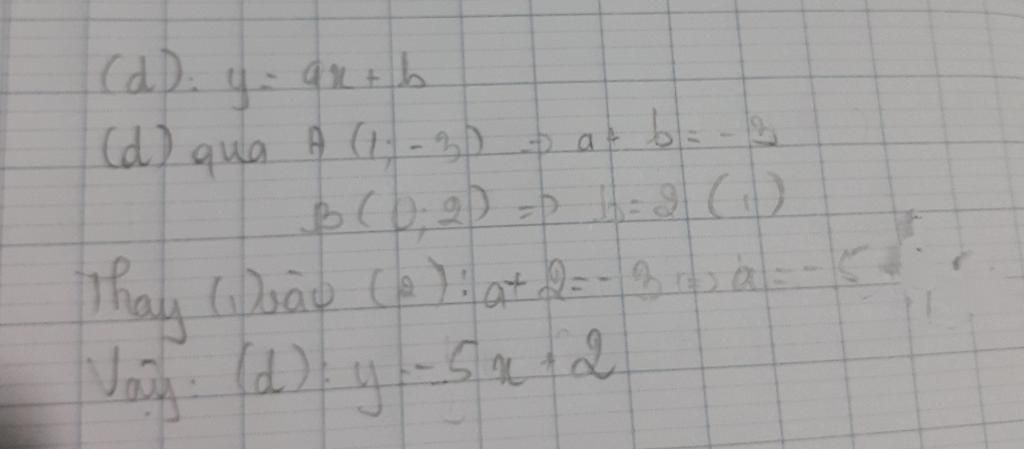 (d): y = ax + b
(d) qua A (1; -3) => a + b = -3
B (0; 2) => b = 2 (1)
Thay (1) vào (2): a + 2 = -3 => a = -5
Vậy: (d): y = -5x + 2